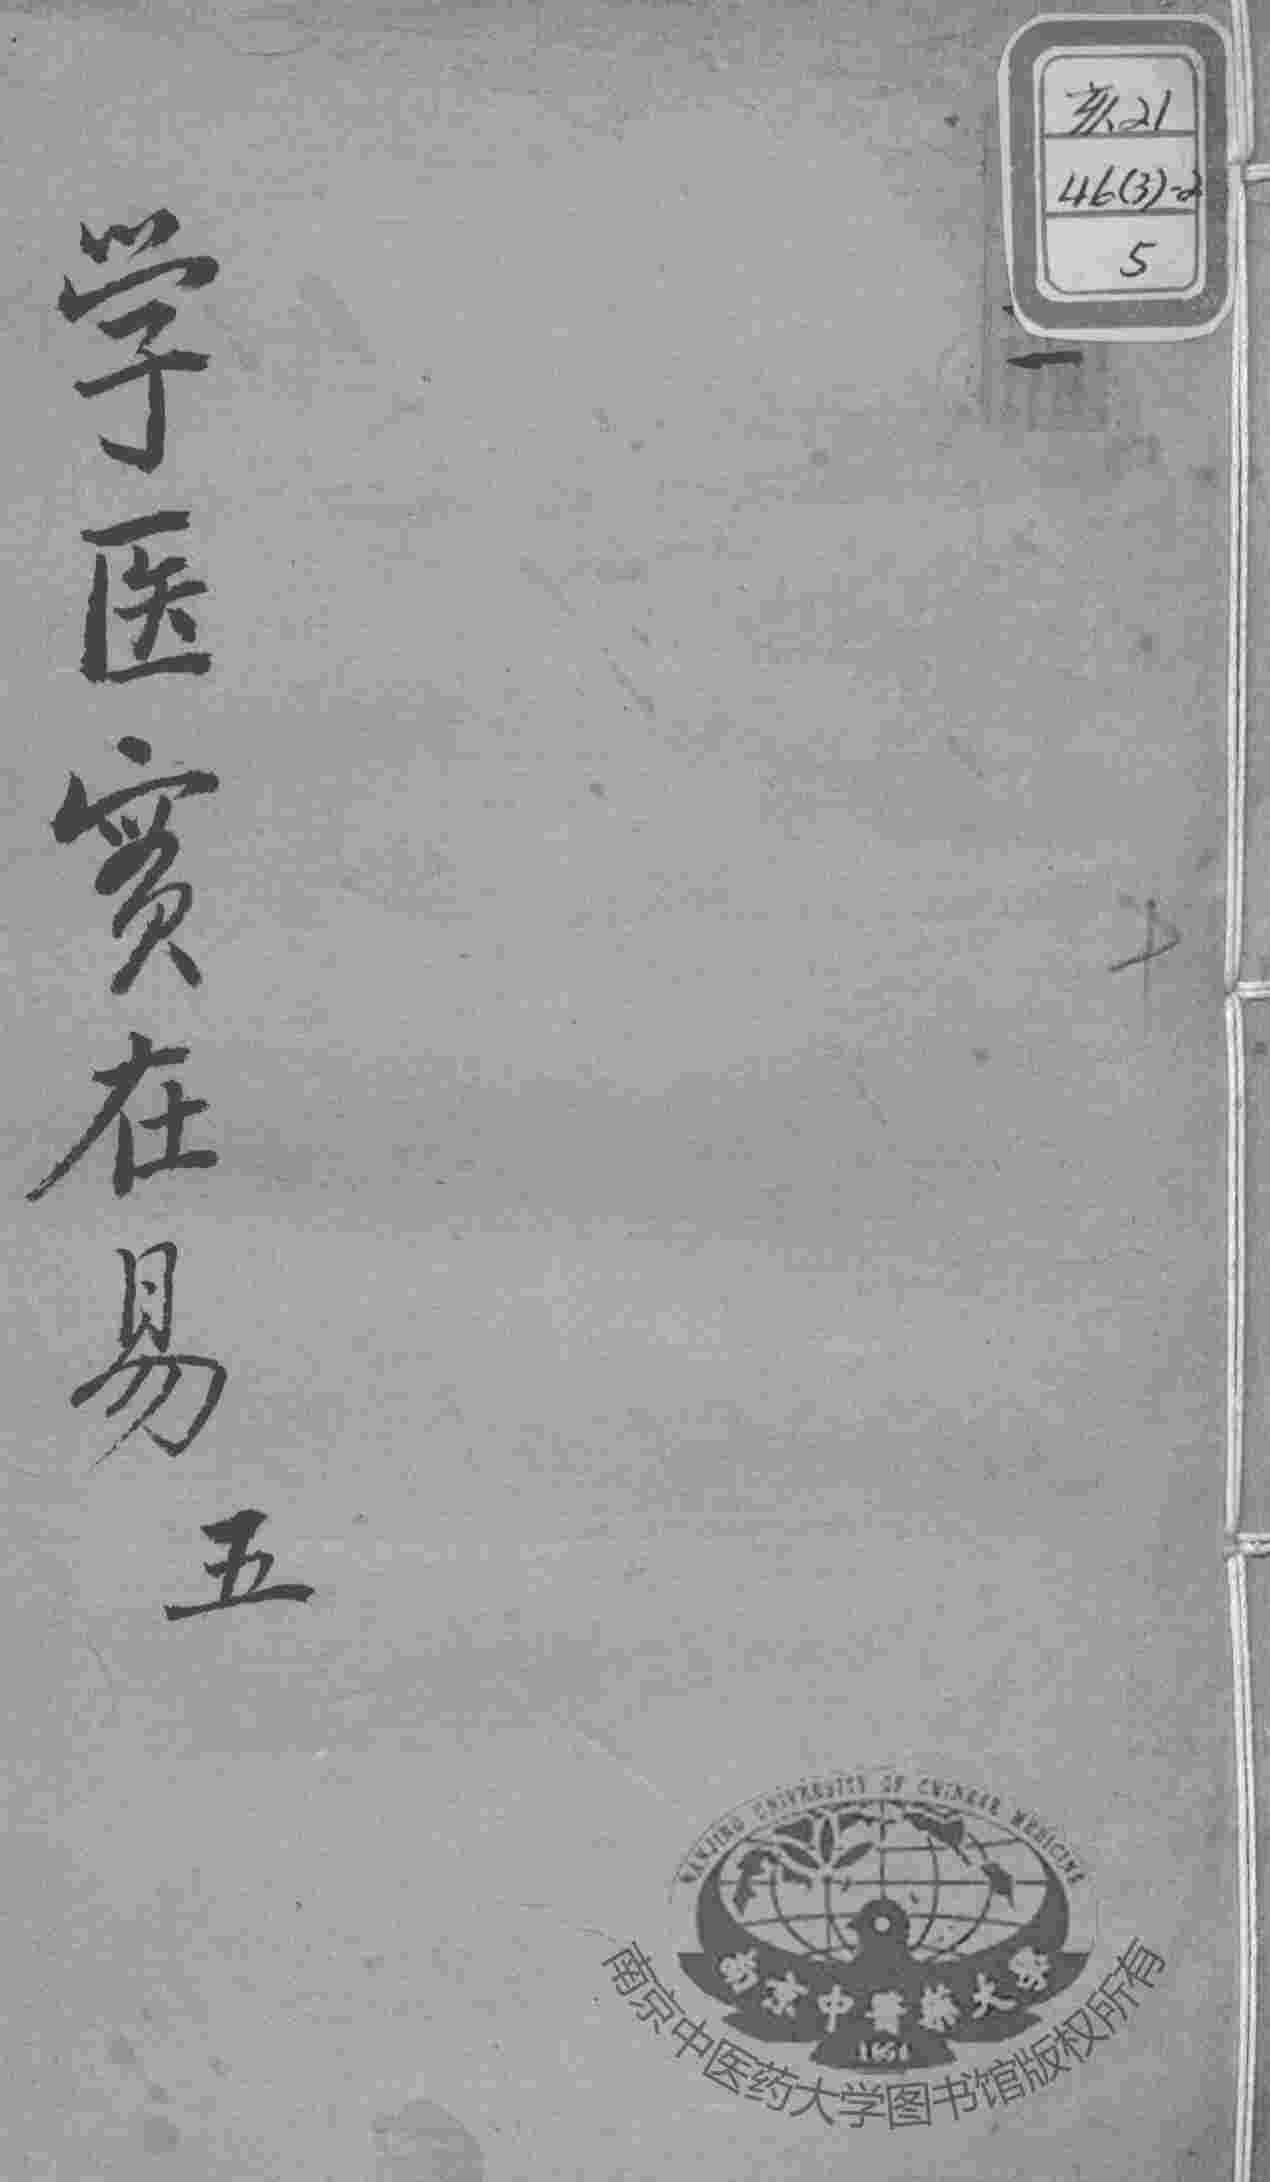 学医實在易
五
亥21
46(3)-2
5
NANJING UNIVERSITY OF CHINESE MEDICINE
南京中醫藥大學
南京中医药大学图书馆版权所有